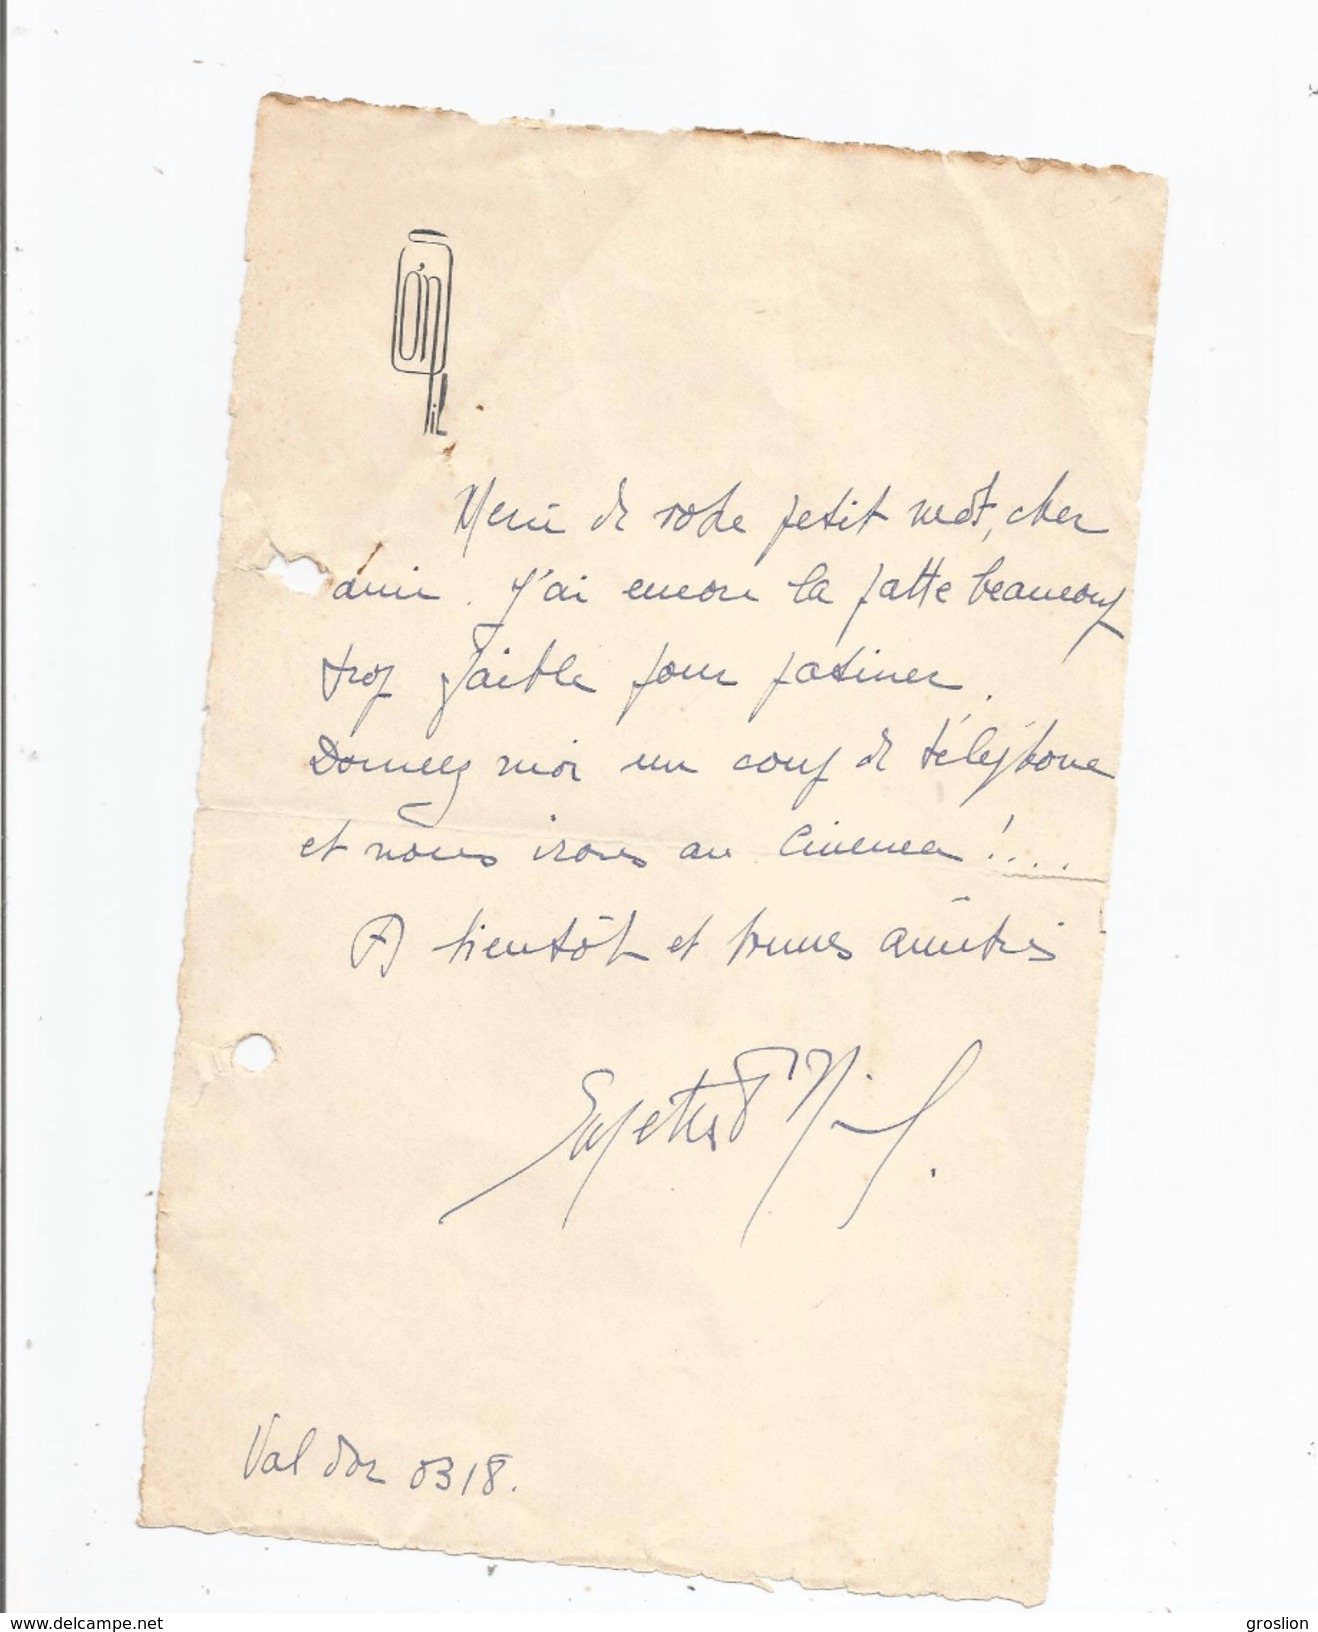 O'n
Merci de votre petit mot, cher
ami. J'ai encore la patte beaucoup
trop faible pour patiner.
Donnez moi un coup de téléphone
et nous irons au Cinéma !....
A bientôt et bonnes amitiés
Val d'or 0318.
www.delcampe.net
groslion